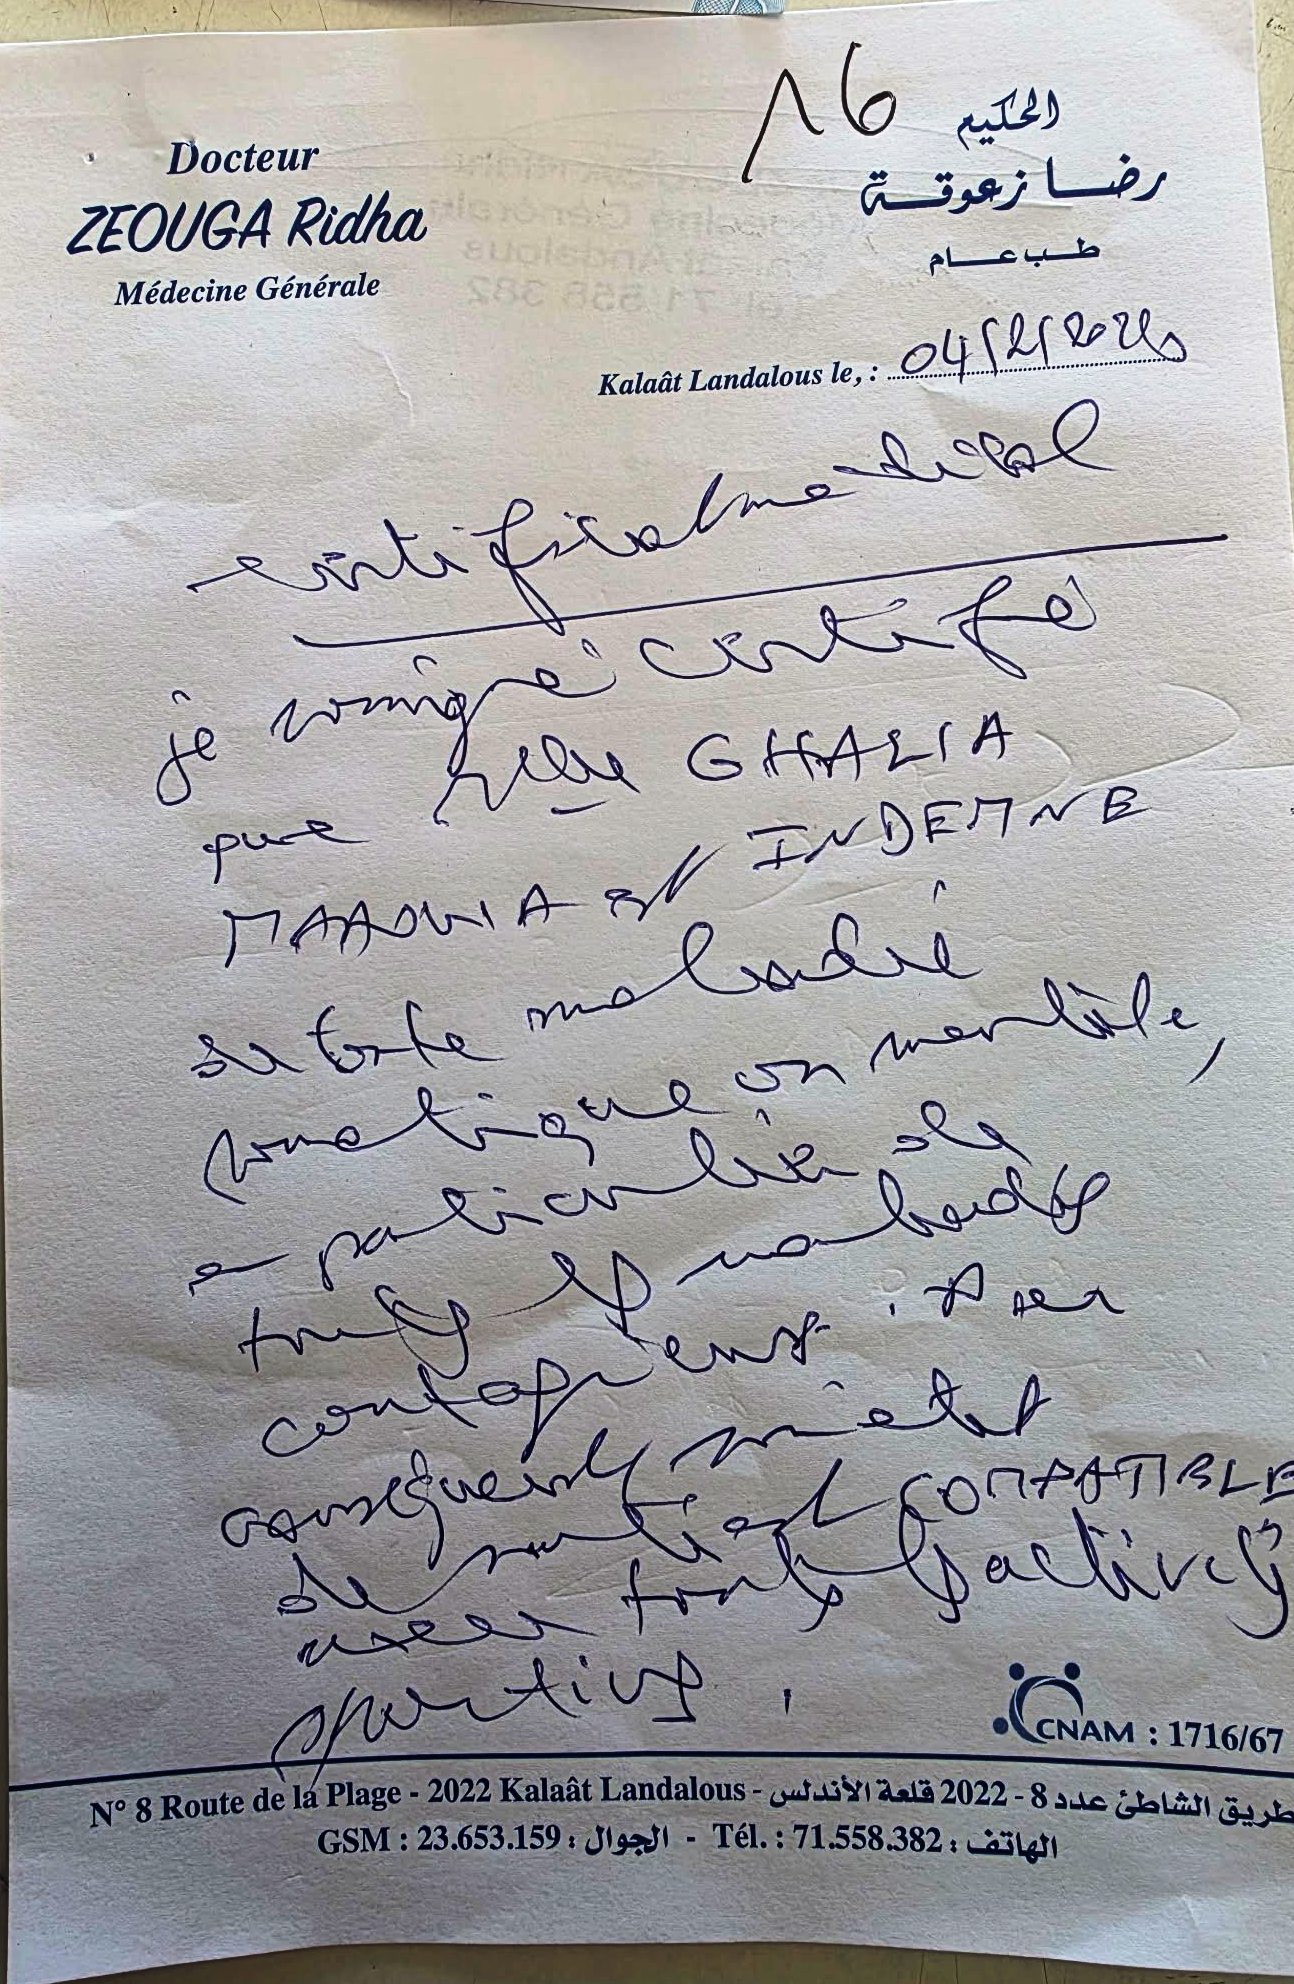 16
Docteur
ZEOUGA Ridha
Médecine Générale
الحكيم
رضا زعوقة
طب عام
Kalaât Landalous le, : 04/2/2020
certificat medical
je soussigné certifie
que GHALIA
MAAOUIA est INDEMNE
de toute maladie
somatique ou mentale,
en particulier de
toutes les maladies
contagieuses. Par
conséquent, son état
de santé est COMPATIBLE
avec toutes les activités
sportives.
CNAM : 1716/67
N° 8 Route de la Plage - 2022 Kalaât Landalous - طريق الشاطئ عدد 8 - 2022 قلعة الأندلس
GSM : 23.653.159 : الجوال - Tél. : 71.558.382 : الهاتف